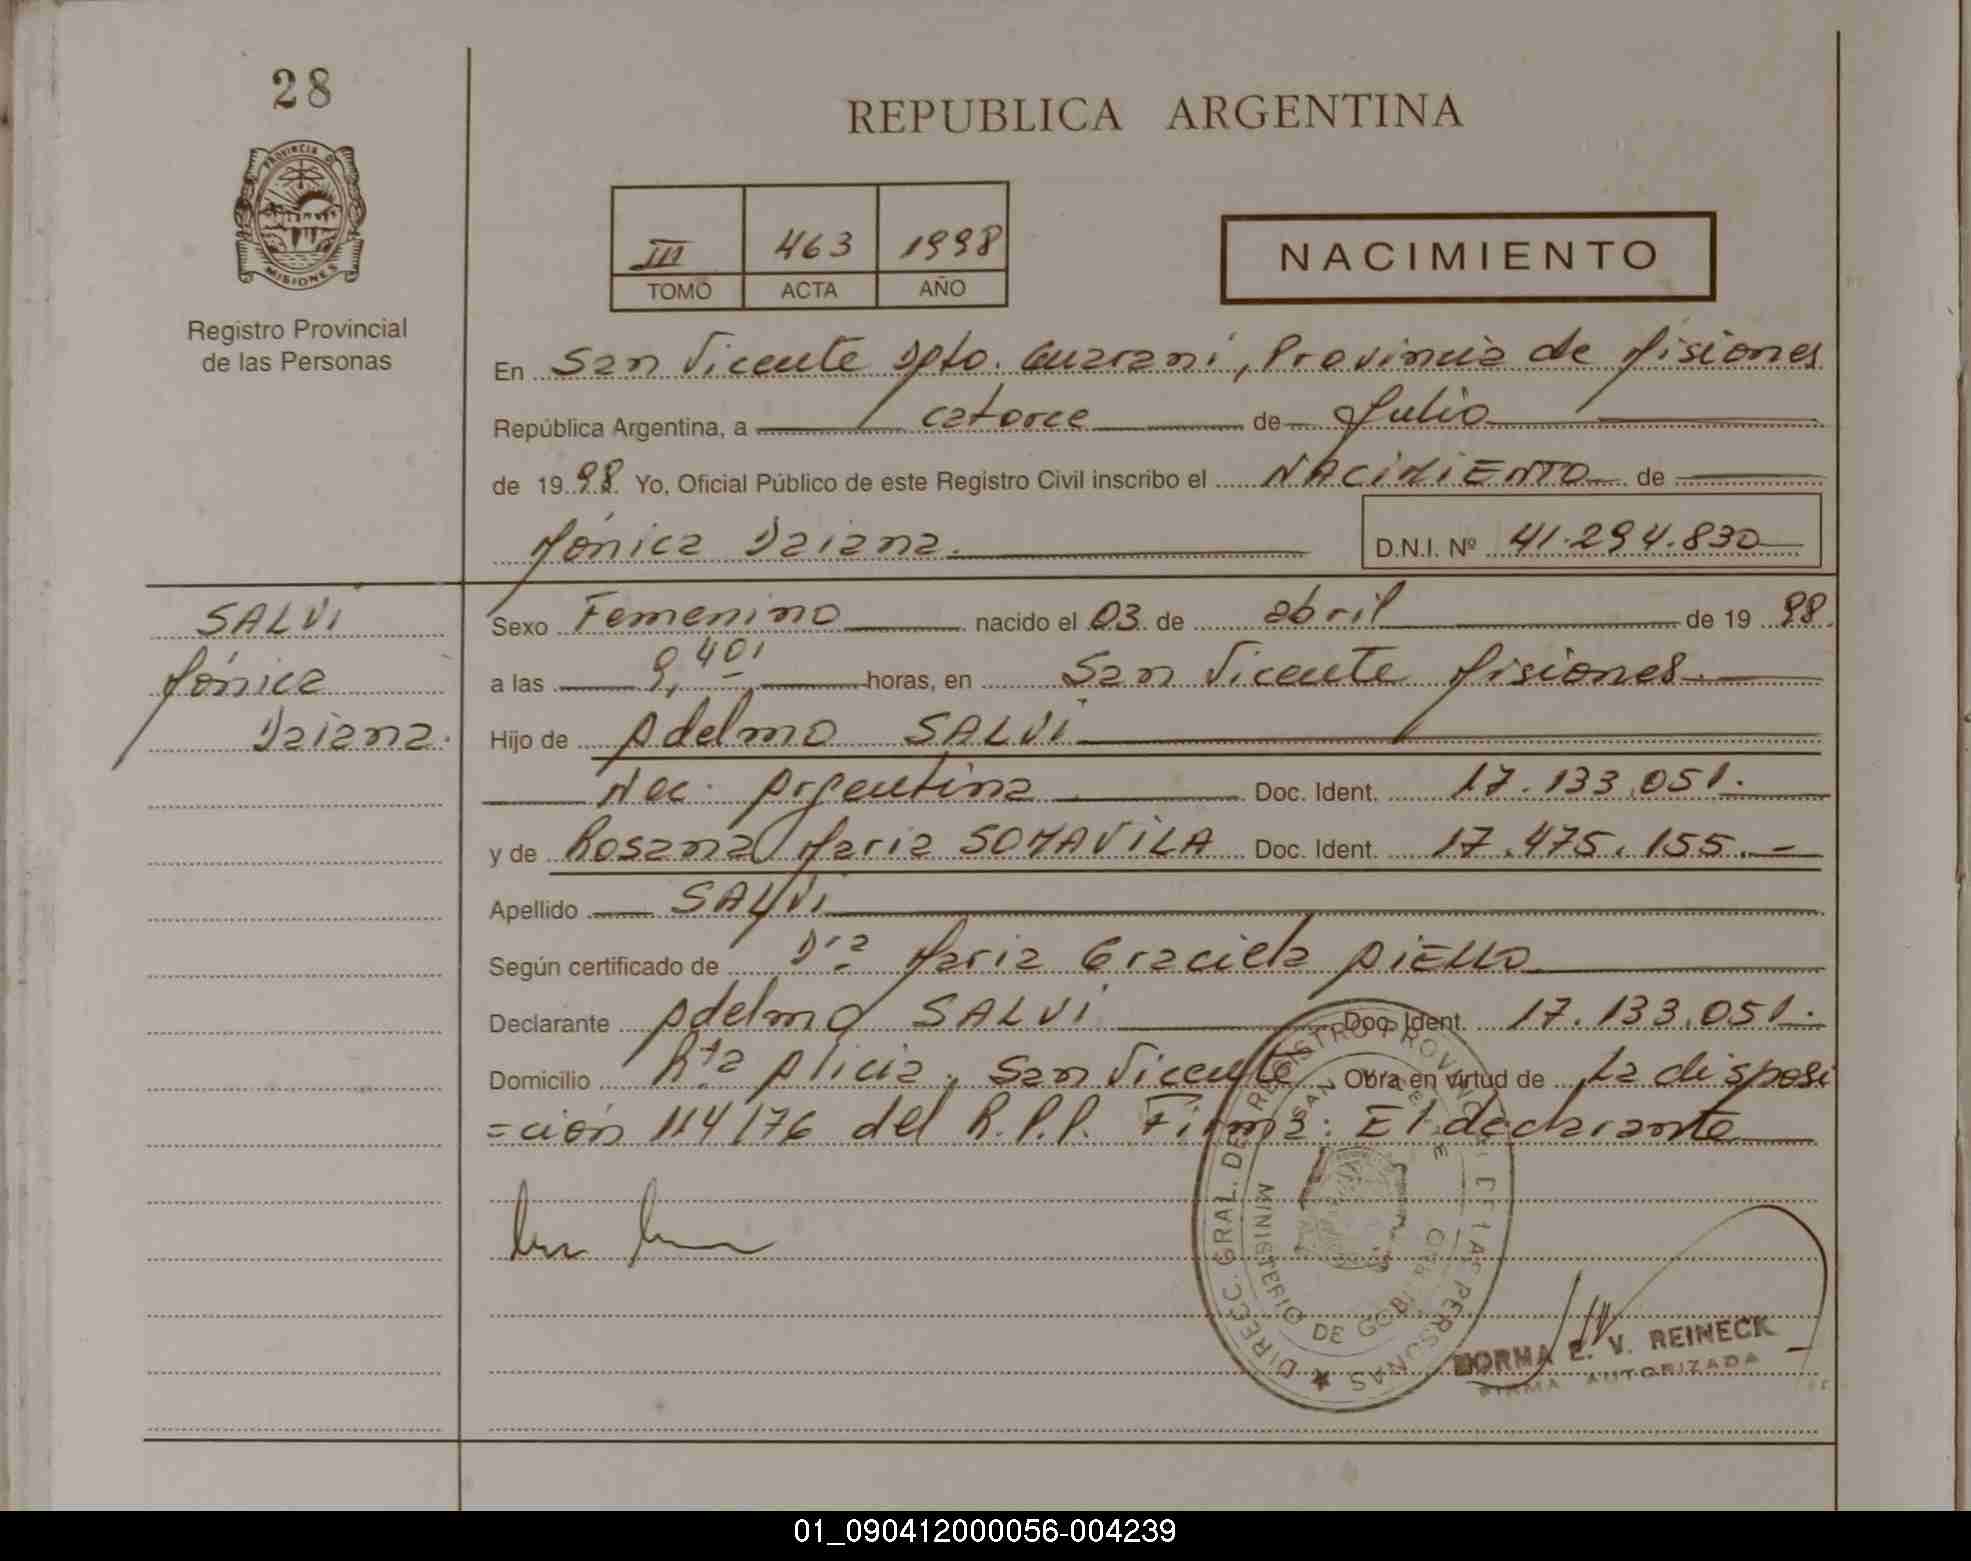 28
REPUBLICA ARGENTINA
PROVINCIA DE
MISIONES
III 463 1998
TOMO ACTA AÑO
NACIMIENTO
Registro Provincial
de las Personas
En San Vicente Dpto. Guaraní, Provincia de Misiones
República Argentina, a catorce de Julio
de 1998 Yo, Oficial Público de este Registro Civil inscribo el NACIMIENTO de
Mónica Daiana. D.N.I. Nº 41.294.830
SALVI
Mónica
Daiana.
Sexo Femenino nacido el 03 de abril de 1998.
a las 9,40' horas, en San Vicente Misiones.
Hijo de Adelmo SALVI
Nac. Argentina Doc. Ident. 17.133.051.
y de Rosana Maria SOMAVILA Doc. Ident. 17.475.155.-
Apellido SALVI
Según certificado de Dra Maria Graciela AIELLO
Declarante Adelmo SALVI Doc. Ident. 17.133.051.
Domicilio Rta Alicia, San Vicente Obra en virtud de La disposi
=ción 114/76 del R.P.P. Firma: El declarante
DIRECC. GRAL. DE REGISTRO PROVINC. DE LAS PERSONAS
SAN VICENTE
MINISTERIO DE GOBIERNO
NORMA E. V. REINECK
FIRMA AUTORIZADA
01_090412000056-004239